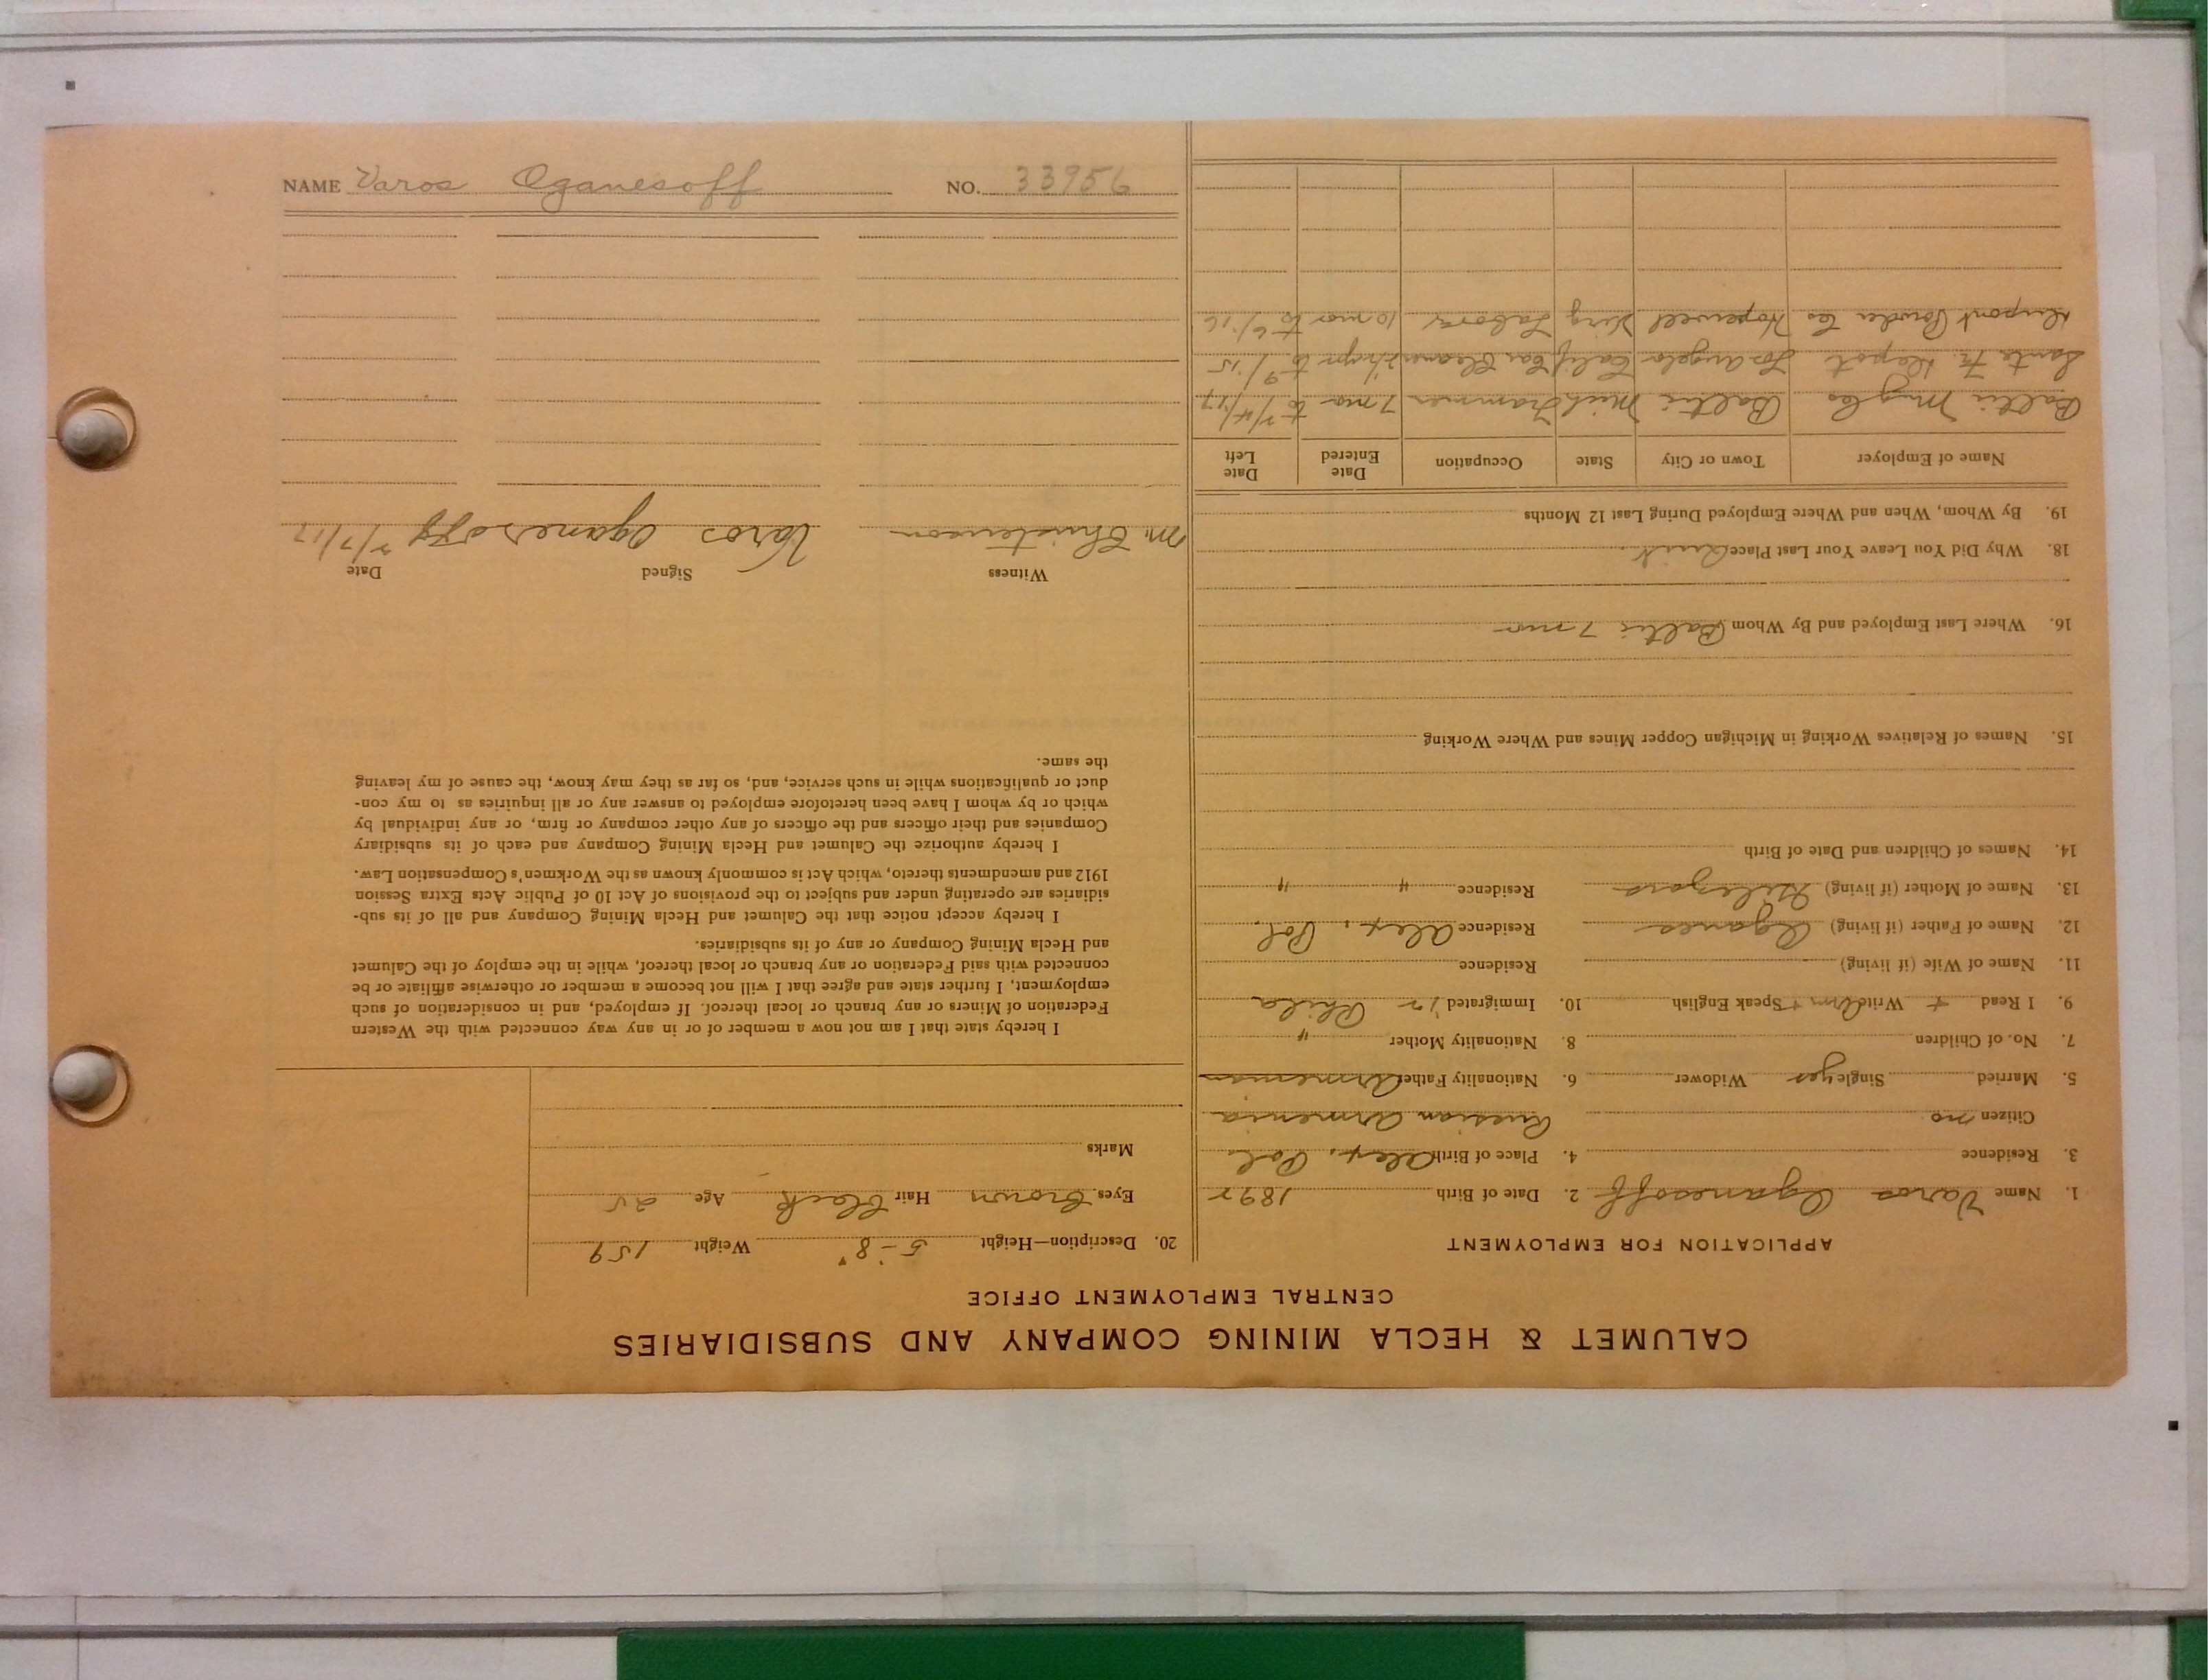 CALUMET & HECLA MINING COMPANY AND SUBSIDIARIES
CENTRAL EMPLOYMENT OFFICE
APPLICATION FOR EMPLOYMENT
1. Name Varos Oganesoff 2. Date of Birth 1892
3. Residence 4. Place of Birth Alex, Pol.
Citizen no Russian Armenia
5. Married Single yes Widower 6. Nationality Father Armenian
7. No. of Children 8. Nationality Mother "
9. I Read + Write Arm + Speak English 10. Immigrated '12 Phila
11. Name of Wife (if living) Residence
12. Name of Father (if living) Oganes Residence Alex, Pol.
13. Name of Mother (if living) Residence " "
14. Names of Children and Date of Birth
15. Names of Relatives Working in Michigan Copper Mines and Where Working
16. Where Last Employed and By Whom Baltic 7 mo
18. Why Did You Leave Your Last Place Quit
19. By Whom, When and Where Employed During Last 12 Months
Name of Employer Town or City State Occupation Date Entered Date Left
Baltic Mng Co Baltic Mich Trammer 7 mo to 7/4/17
Santa Fe. Depot Los Angelo Calif Car Cleaner to 9/15
Dupont Powder Co Hopewell Virg Labor 10 mo to 6/16
20. Description—Height 5-8" Weight 159
Eyes brown Hair black Age 25
Marks
I hereby state that I am not now a member of or in any way connected with the Western
Federation of Miners or any branch or local thereof. If employed, and in consideration of such
employment, I further state and agree that I will not become a member or otherwise affiliate or be
connected with said Federation or any branch or local thereof, while in the employ of the Calumet
and Hecla Mining Company or any of its subsidiaries.
I hereby accept notice that the Calumet and Hecla Mining Company and all of its sub-
sidiaries are operating under and subject to the provisions of Act 10 of Public Acts Extra Session
1912 and amendments thereto, which Act is commonly known as the Workmen's Compensation Law.
I hereby authorize the Calumet and Hecla Mining Company and each of its subsidiary
Companies and their officers and the officers of any other company or firm, or any individual by
which or by whom I have been heretofore employed to answer any or all inquiries as to my con-
duct or qualifications while in such service, and, so far as they may know, the cause of my leaving
the same.
Witness Signed Date
M. Christenson Varos Oganesoff 7/7/17
NAME Varos Oganesoff NO. 33956